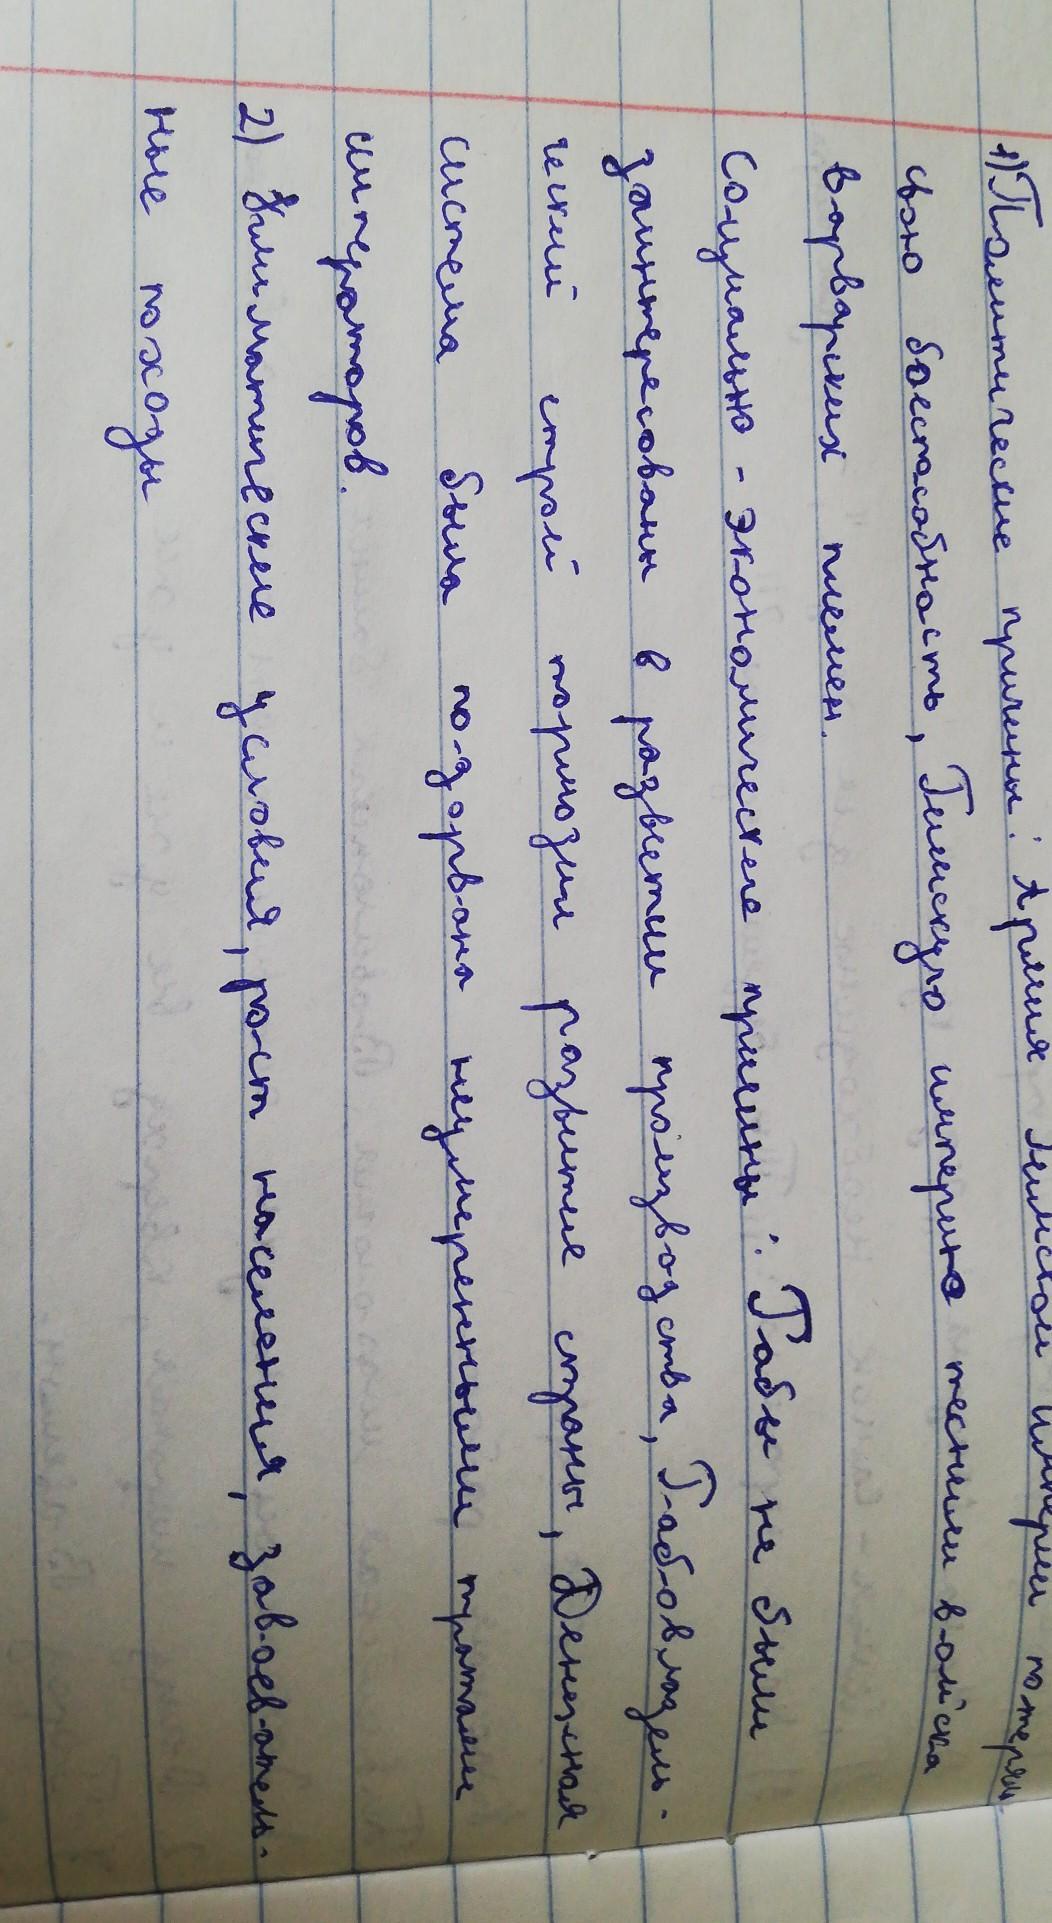 1) Политические причины: Армия Римской империи потеряла
свою боеспособность, Римскую империю теснили войска
варварских племен.
Социально-экономические причины: Рабы не были
заинтересованы в развитии производства, Рабовладель-
ческий строй тормозил развитие страны, Денежная
система была подорвана неумеренными тратами
императоров.
2) Климатические условия, рост населения, завоеватель-
ные походы